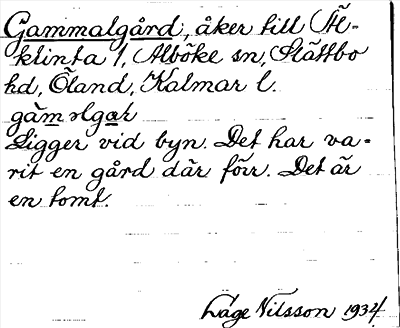 Gammalgård, åker till Äl-
klinta 1, Alböke sn, Slättbo
hd, Öland, Kalmar l.
gàmǝlgar
Ligger vid byn. Det har va-
rit en gård där förr. Det är
en tomt.
Låge Nilsson 1934